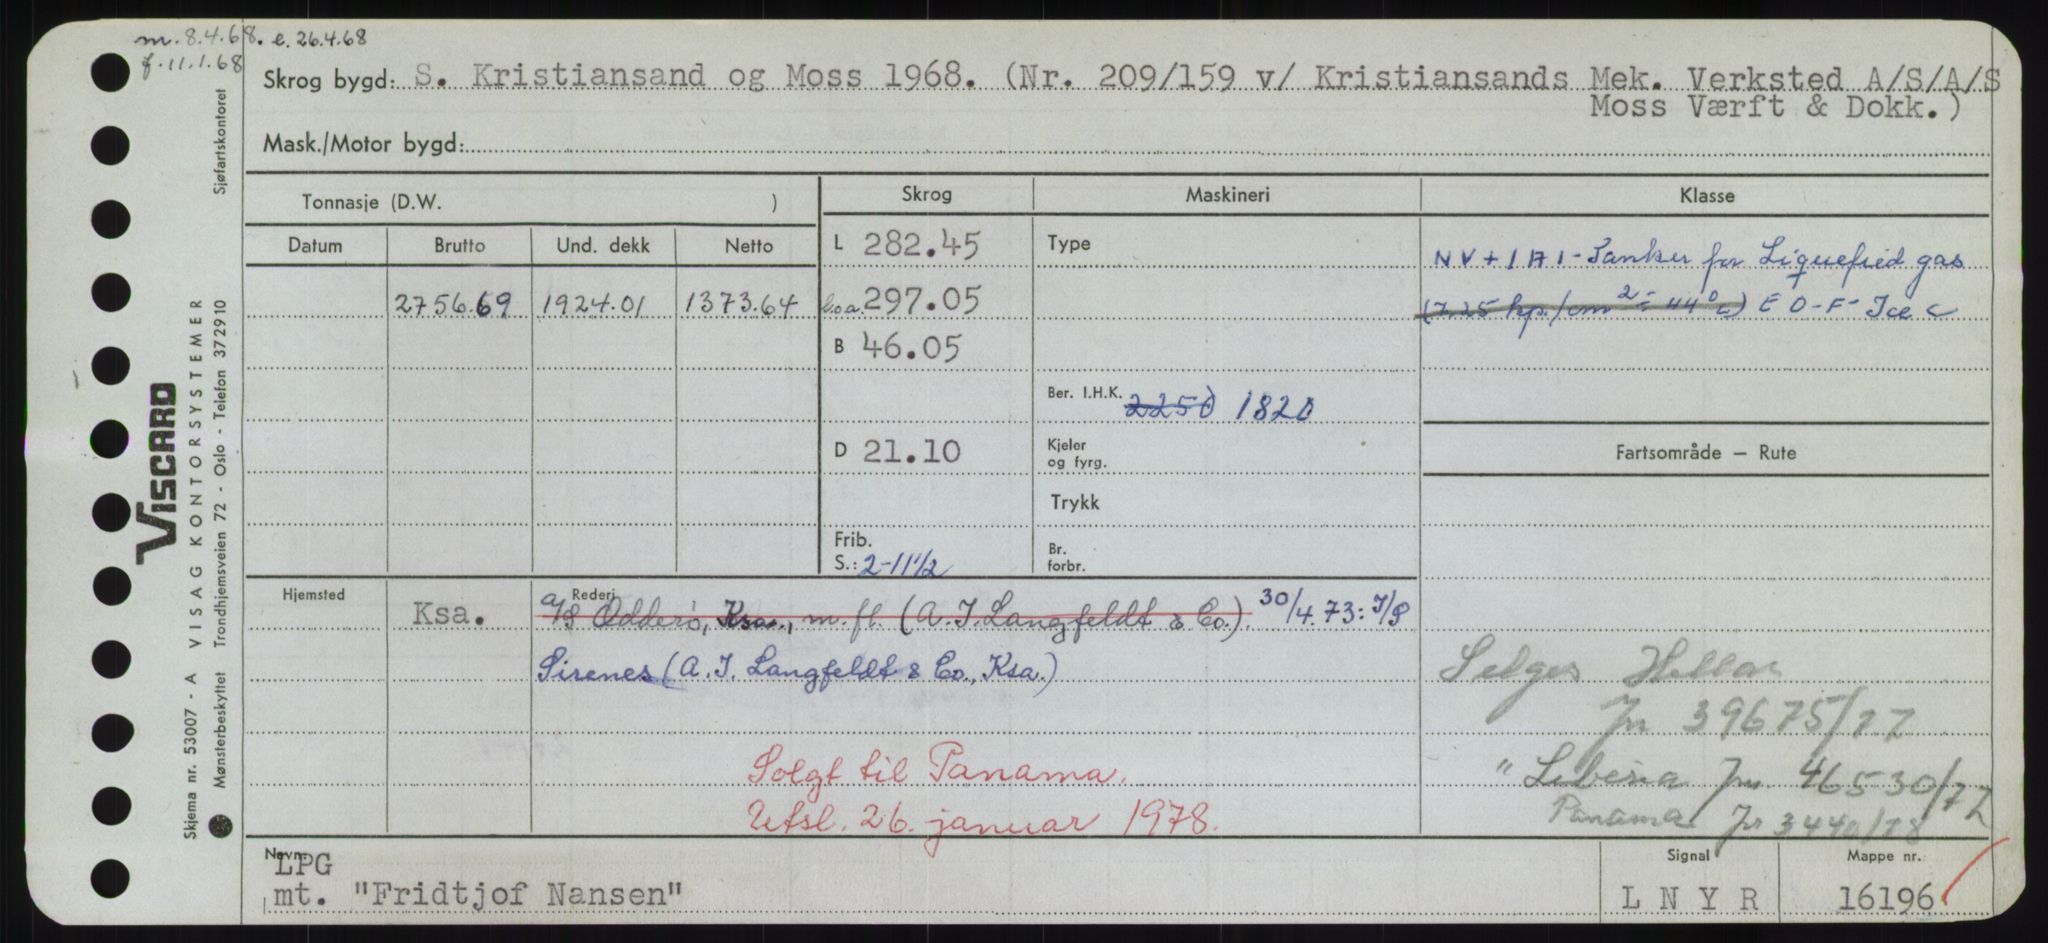 m. 8.4.68. e. 26.4.68
f. 11.1.68
Skrog bygd: S. Kristiansand og Moss 1968. (Nr. 209/159 v/ Kristiansands Mek. Verksted A/S/A/S
Moss Værft & Dokk.)
Mask./Motor bygd:
Tonnasje (D.W. )
Skrog
Maskineri
Klasse
Datum Brutto Und. dekk Netto
L 282.45
Type
NV + 1A1 - Tanker for Liquefied gas
2756.69 1924.01 1373.64
l.o.a. 297.05
(7.25 kp./cm² ÷ 44° C) E O-F- Ice C
B 46.05
Ber. I.H.K. 2250 1820
D 21.10
Kjeler
og fyrg.
Fartsområde — Rute
Trykk
Frib.
S.: 2-11 1/2
Br.
forbr.
Hjemsted
Ksa.
Rederi
A/S Odderø, Ksa., m.fl. (A. I. Langfeldt & Co.). 30/4.73: I/S
Sirenes (A. I. Langfeldt & Co., Ksa.)
Selges Hellas
Jr 39675/77
Solgt til Panama.
" Liberia Jnr. 46530/77
Utsl. 26. januar 1978.
Panama Jr 3440/78
Navn:
LPG
mt. "Fridtjof Nansen"
Signal
L N Y R
Mappe nr.
16196
VISCARD
VISAG KONTORSYSTEMER
Skjema nr. 53007 - A
Mønsterbeskyttet Trondhjemsveien 72 - Oslo - Telefon 372910 Sjøfartskontoret